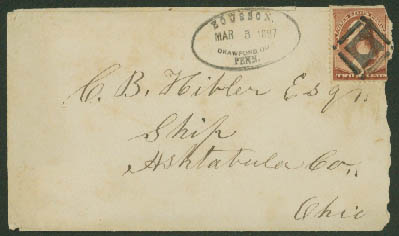 MAR 5 1887
CRAWFORD CO.
PENN.
TWO CENTS
C. B. Hibler Esqr.
Ship
Ashtabula Co.
Ohio